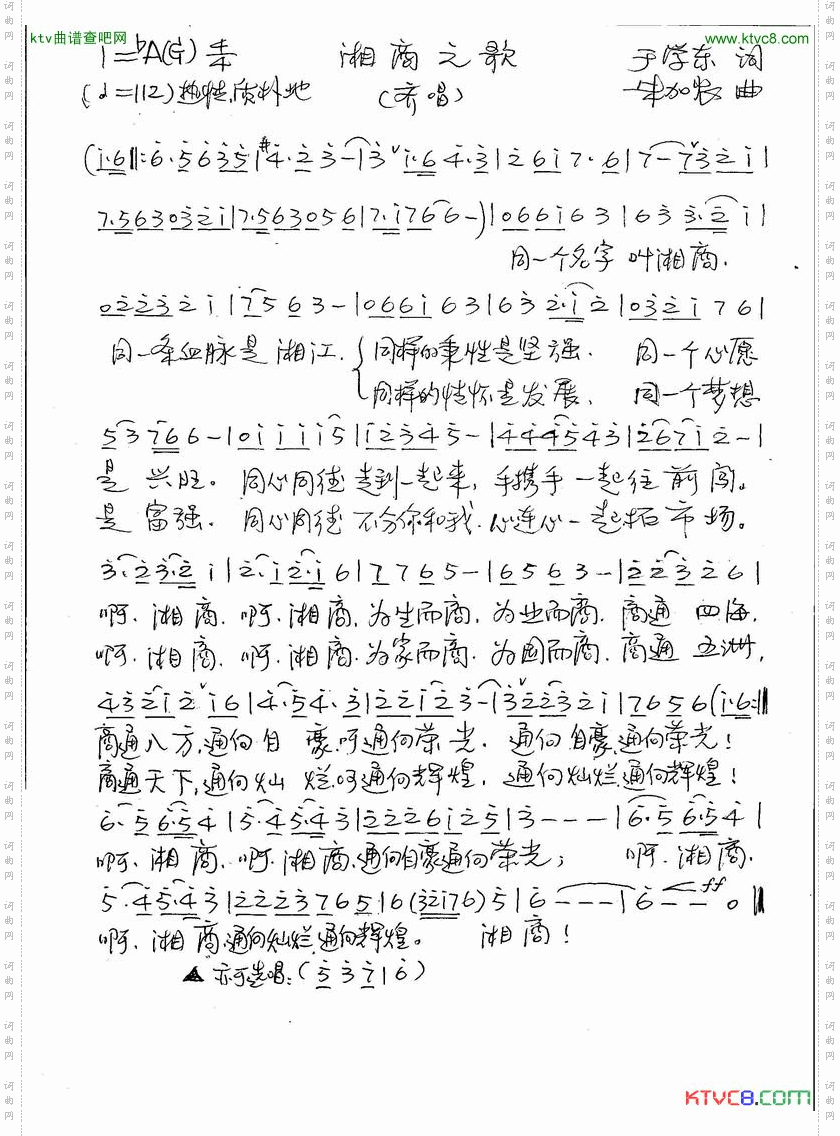 ktv曲谱查吧网 www.ktvc8.com
1=bA(G) 4/4 湘商之歌 于学东 词
(♩=112) 热情、质朴地 (齐唱) 牟加农 曲
(i·6‖:6·5635|#4·23-|3 i·64·3|26i7·6|7-732i|
7·563032i|7·563056|7·i766-)|066i63|633·2i|
同一个名字 叫湘商.
02232i|7563-|066i63|632·i2|032i76|
同一条血脉是湘江. 同样的秉性是坚强. 同一个心愿
同样的情怀是发展, 同一个梦想
53766-|0iiii5|i2345-|444543|267i2-|
是兴旺。同心同德走到一起来, 手携手一起往前闯。
是富强. 同心同德不分你和我. 心连心一起拓市场。
3·23·2i|2·i2·i6|7765-|6563-|223226|
啊. 湘商. 啊. 湘商, 为生而商, 为业而商. 商通四海.
啊. 湘商. 啊. 湘商. 为家而商. 为国而商. 商通五洲,
432i2i6|4·54·3|22i23-|32232i|7656(i·6:‖
商通八方,通向自豪,呵通向荣光. 通向自豪,通向荣光!
商通天下,通向灿烂,呵通向辉煌. 通向灿烂,通向辉煌!
6·56·54|5·45·43|2226i25|3---|6·56·54|
啊. 湘商. 啊. 湘商,通向自豪通向荣光; 啊. 湘商.
5·45·43|222376516(32i76)5|6---|6--0‖
ff
啊. 湘商,通向灿烂,通向辉煌。 湘商!
▲ 亦可选唱:(537|6)
KTVC8.COM
词曲网